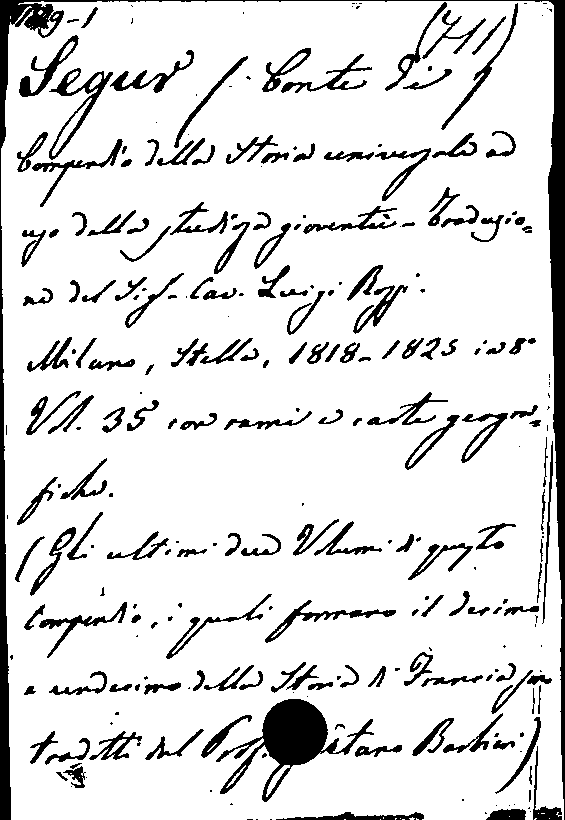 (711)
Segur (Conte di)
Compendio della Storia universale ad
uso della studiosa gioventù - Traduzio=
ne del Sigr Cav. Luigi Rossi.
Milano, Stella, 1818-1825 in 8°
Vol. 35 con rami e carte geogra=
fiche.
(Gli ultimi due Volumi di questo
Compendio, i quali formano il decimo
e undecimo della Storia di Francia son
tradotti dal Profr Gaetano Barbieri)